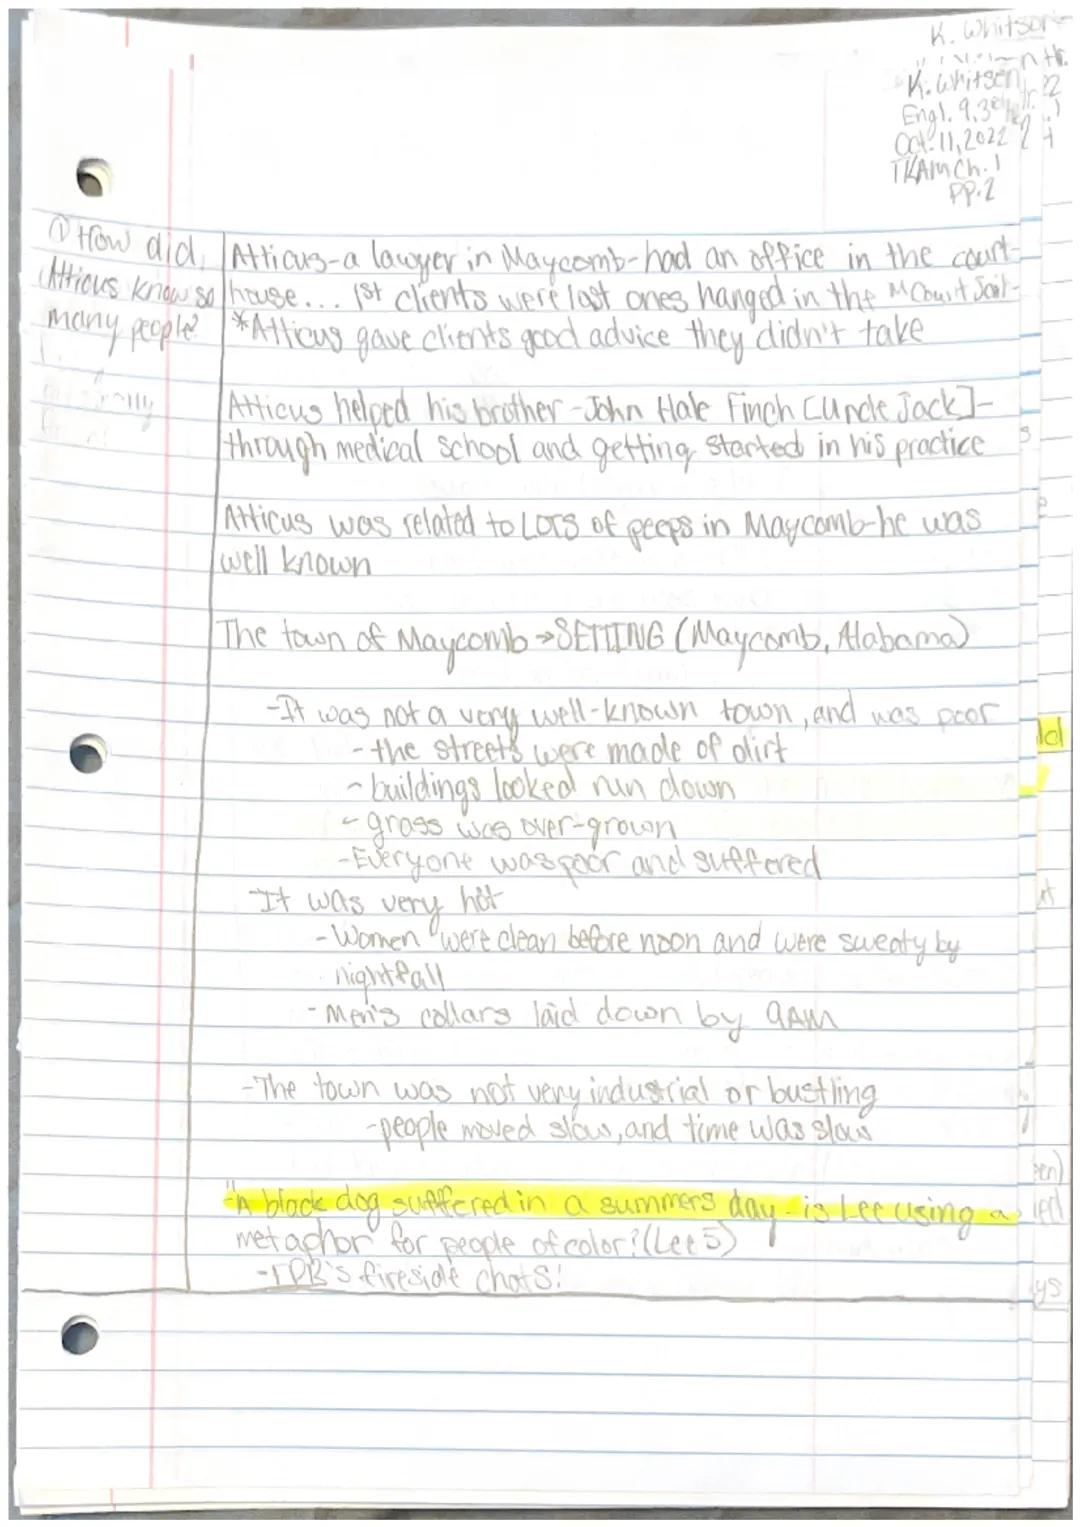 K. Whitson
K. Whitsen
Engl. 9, 3
Oct. 11, 2022
TKAM Ch. 1
pp. 2
① How did
Atticus know so
many people?
Atticus-a lawyer in Maycomb-had an office in the court-
house... 1st clients were last ones hanged in the M Court Jail-
*Atticus gave clients good advice they didn't take
Atticus helped his brother-John Hale Finch [Uncle Jack]-
through medical school and getting started in his practice
Atticus was related to LOTS of peeps in Maycomb-he was
well known
The town of Maycomb → SETTING (Maycomb, Alabama)
-It was not a very well-known town, and was poor
- the streets were made of dirt
- buildings looked run down
- grass was over-grown
-Everyone was poor and suffered
-It was very hot
- Women were clean before noon and were sweaty by
nightfall
- Men's collars laid down by 9AM
-The town was not very industrial or bustling
-people moved slow, and time was slow
-"A black dog suffered in a summers day - is Lee using a
metaphor" for people of color? (Lee 5)
-FDR's fireside chats!